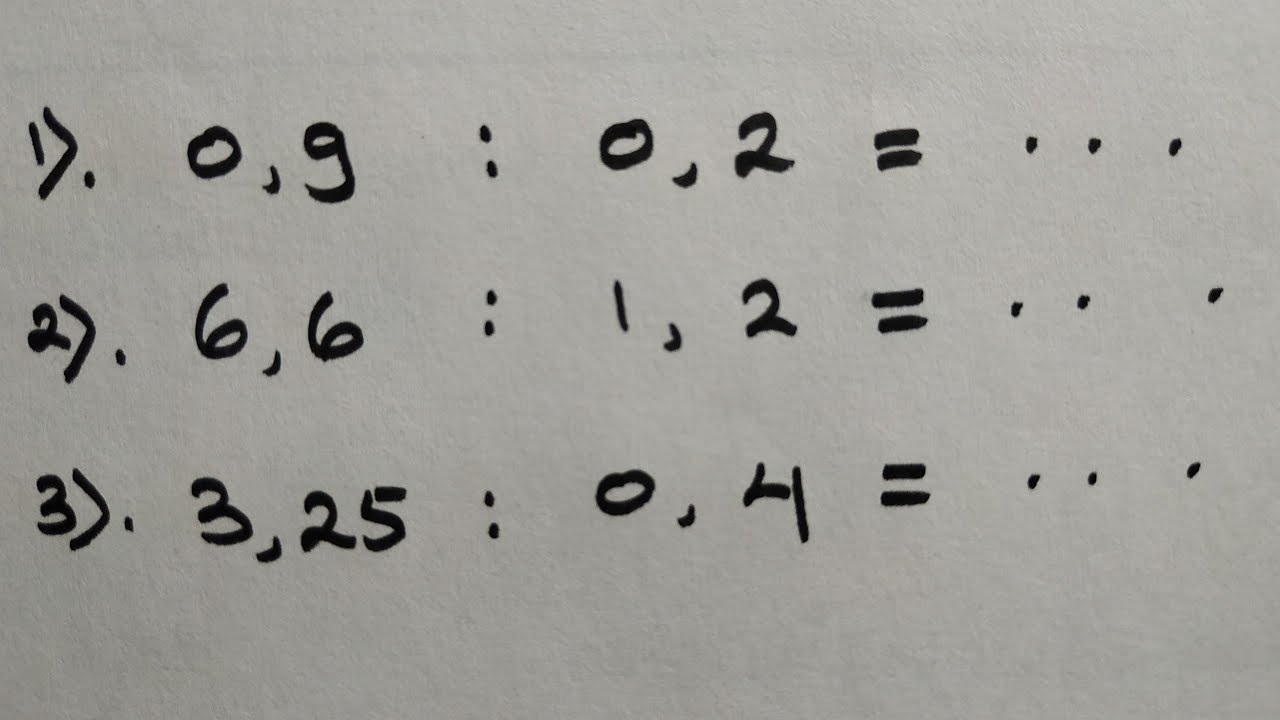 1). 0,9 : 0,2 = ...
2). 6,6 : 1,2 = ...
3). 3,25 : 0,4 = ...